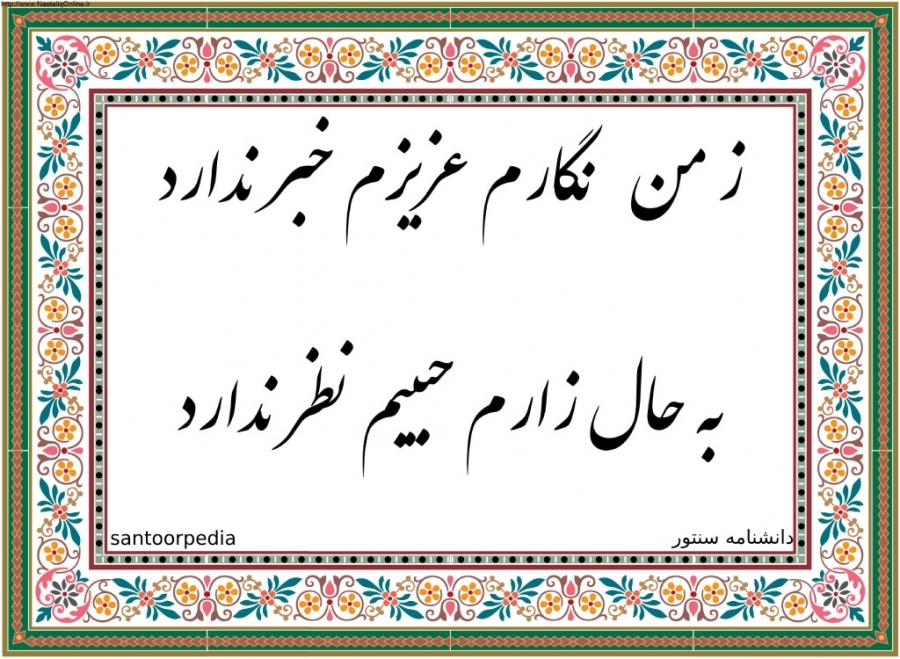 http://www.NastaliqOnline.ir
ز من نگارم عزیزم خبر ندارد
به حال زارم حبیبم نظر ندارد
santoorpedia دانشنامه سنتور